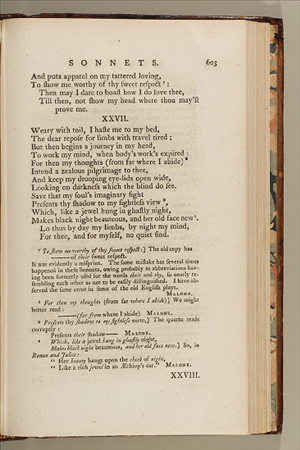 SONNETS. 603
And puts apparel on my tattered loving,
To ſhow me worthy of thy ſweet reſpect ⁷:
Then may I dare to boaſt how I do love thee,
Till then, not ſhow my head where thou may'ſt
prove me.
XXVII.
Weary with toil, I haſte me to my bed,
The dear repoſe for limbs with travel tired;
But then begins a journey in my head,
To work my mind, when body's work's expired:
For then my thoughts (from far where I abide) ⁸
Intend a zealous pilgrimage to thee,
And keep my drooping eye-lids open wide,
Looking on darkneſs which the blind do ſee.
Save that my ſoul's imaginary ſight
Preſents thy ſhadow to my ſightleſs view ⁹,
Which, like a jewel hung in ghaſtly night,
Makes black night beauteous, and her old face new ¹.
Lo thus by day my limbs, by night my mind,
For thee, and for myſelf, no quiet find.
⁷ To ſhow me worthy of thy ſweet reſpect:] The old copy has
——— of their ſweet reſpect.
It was evidently a miſprint. The ſame miſtake has ſeveral times
happened in theſe Sonnets, owing probably to abbreviations hav-
ing been formerly uſed for the words their and thy, ſo nearly re-
ſembling each other as not to be eaſily diſtinguiſhed. I have ob-
ſerved the ſame error in ſome of the old Engliſh plays.
MALONE.
⁸ For then my thoughts (from far where I abide)] We might
better read:
——— (far from where I abide) MALONE.
⁹ Preſents thy ſhadow to my ſightleſs view,] The quarto reads
corruptly:
Preſents their ſhadow—— MALONE.
¹ Which, like a jewel hung in ghaſtly night,
Makes black night beauteous, and her old face new.] So, in
Romeo and Juliet:
" Her beauty hangs upon the cheek of night,
" Like a rich jewel in an Æthiop's ear." MALONE.
XXVIII.